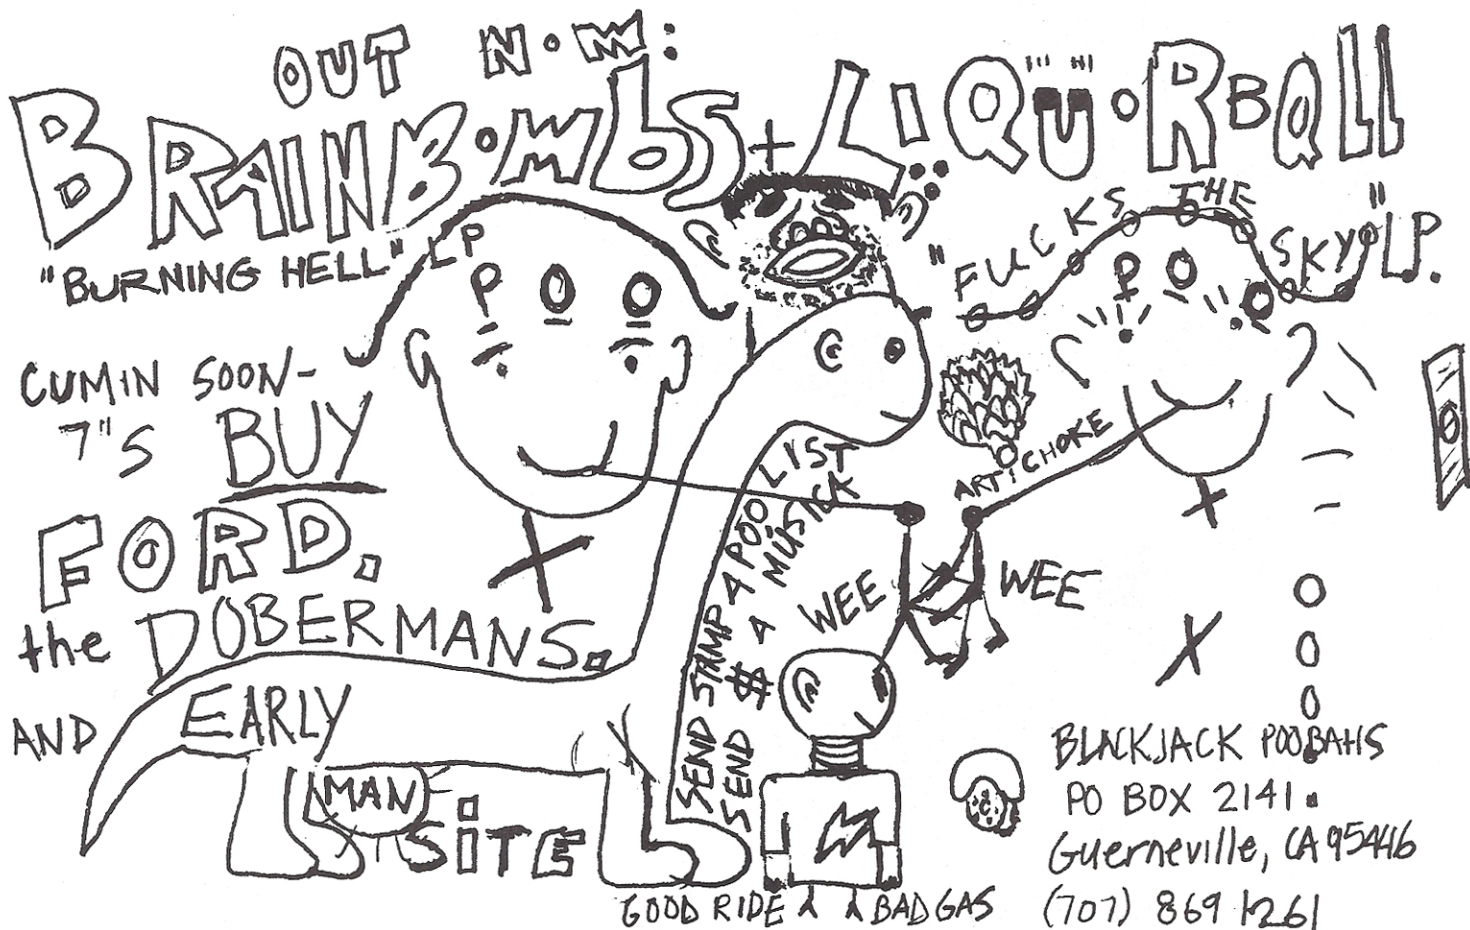 OUT NOW:
BRAINBOMBS + LiQUORBALL
"BURNING HELL" LP
"FUCKS THE SKY" LP.
POO
PO
CUMIN SOON-
7"S BUY
FORD.
the DOBERMANS.
AND EARLY
MAN SiTE
ARTiCHOKE
SEND STAMP 4 POO LIST
SEND $ 4 MÜSICK
WEE
WEE
GOOD RIDE
BAD GAS
BLACKJACK POOBAHS
PO BOX 2141.
Guerneville, CA 95446
(707) 869 1261